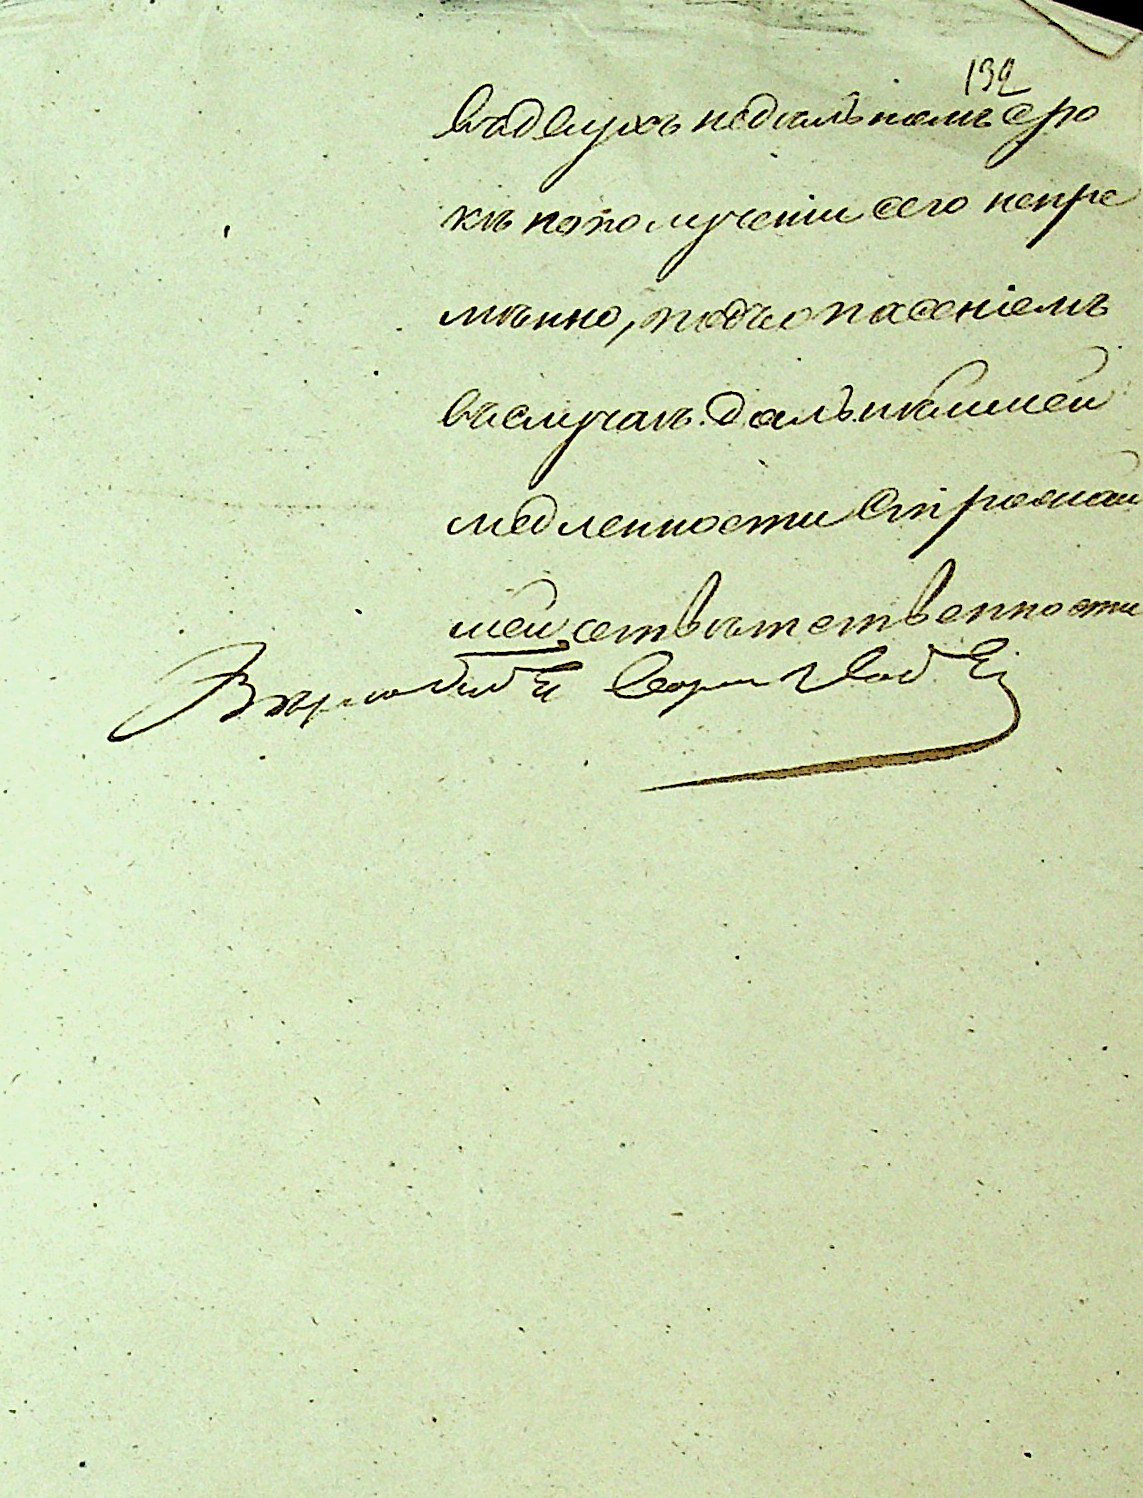 132
въ двухъ недѣльномъ сро
кѣ по получении сего непре
мѣнно, подъ опасеніемъ
въ случаѣ дальнѣйшей
медленности строжай
шей ответственности